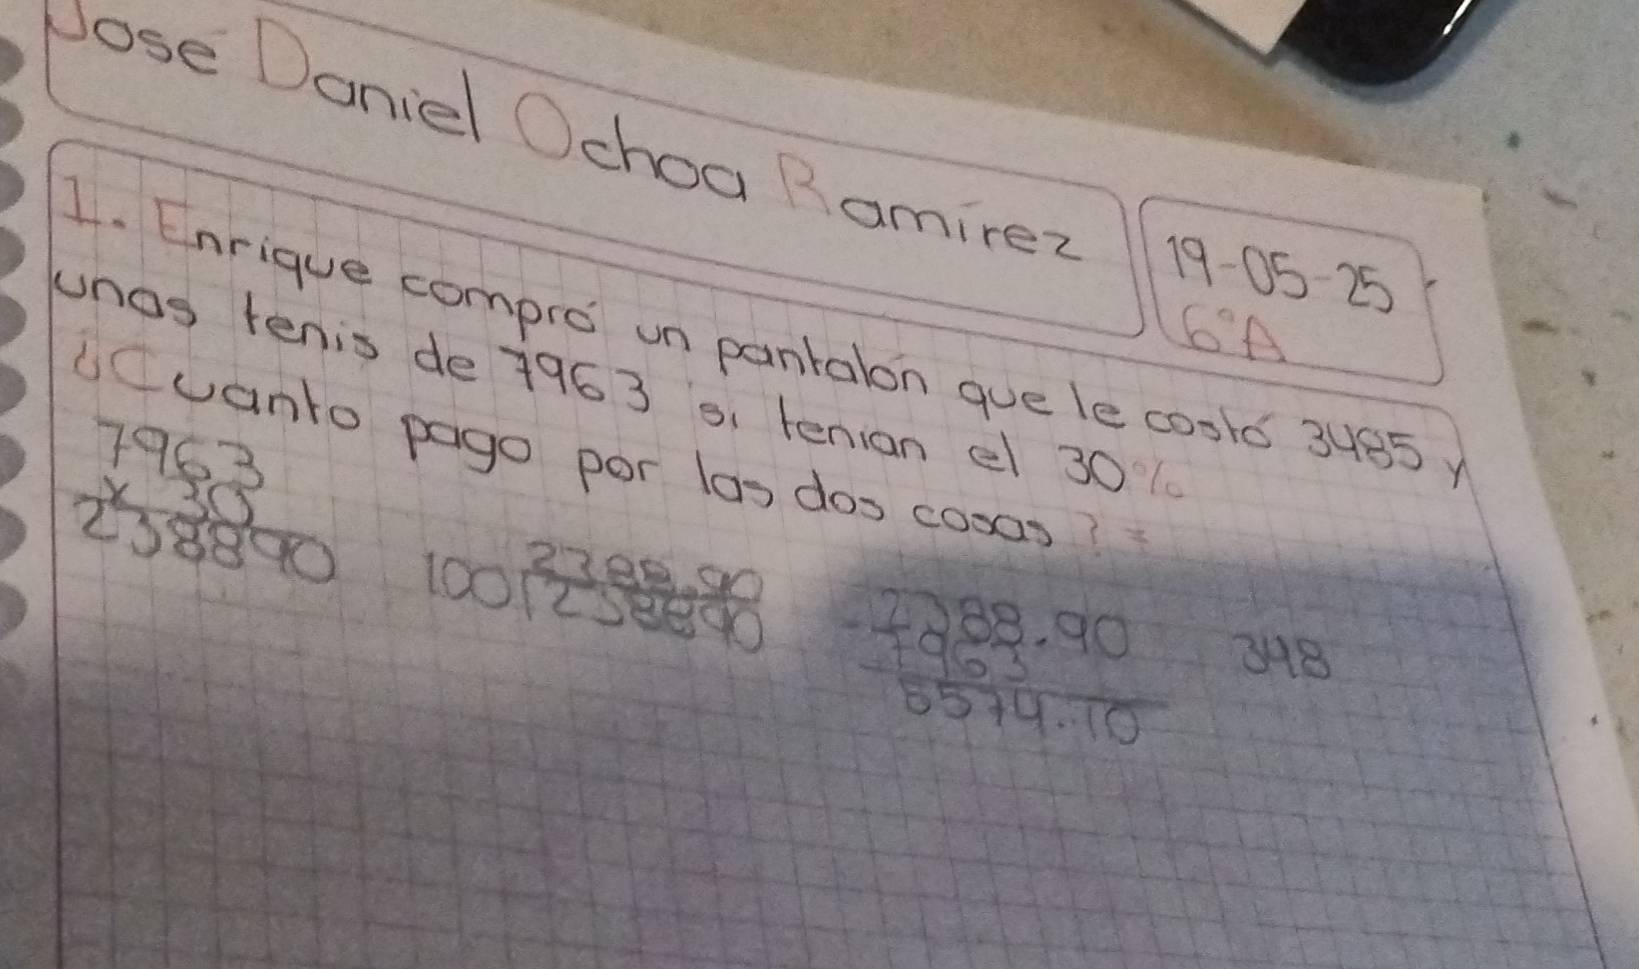 Jose Daniel Ochoa Ramírez
19-05-25
6°A
1. Enrique compró un pantalón que le costó 3485 y
unos tenis de 7963 si tenian el 30%
¿Cuanto pago por las dos cosas? =
7963
x 30
238890
2388.90
100 238890
- 2388.90
7963
5574.10
348